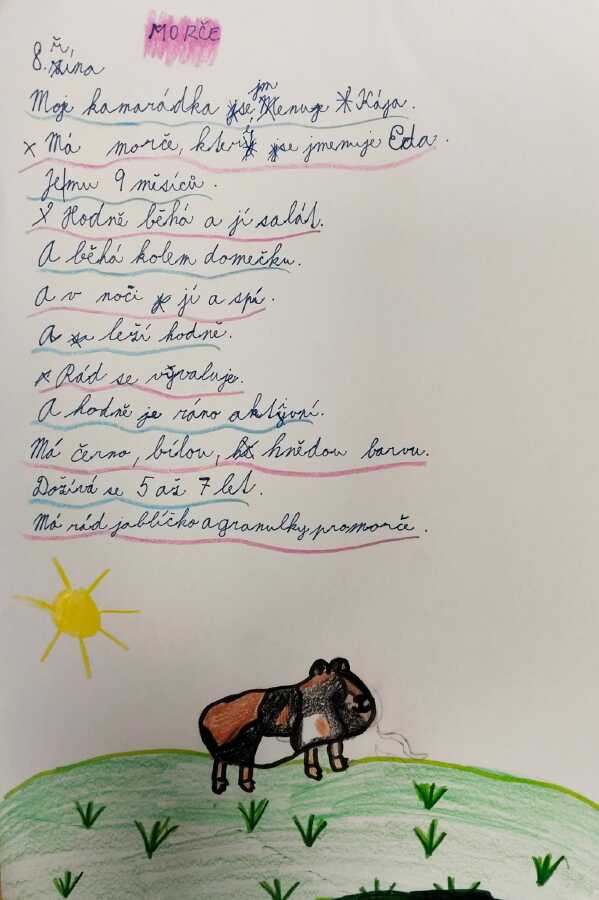 MORČE
8. října
Moje kamarádka se jmenuje Kája.
Má morče, které se jmenuje Eda.
Je mu 9 měsíců.
Hodně běhá a jí salát.
A běhá kolem domečku.
A v noci jí a spí.
A leží hodně.
Rád se vyvaluje.
A hodně je ráno aktivní.
Má černo, bílou, hnědou barvu.
Dožívá se 5 až 7 let.
Má rád jablíčko a granulky pro morče.